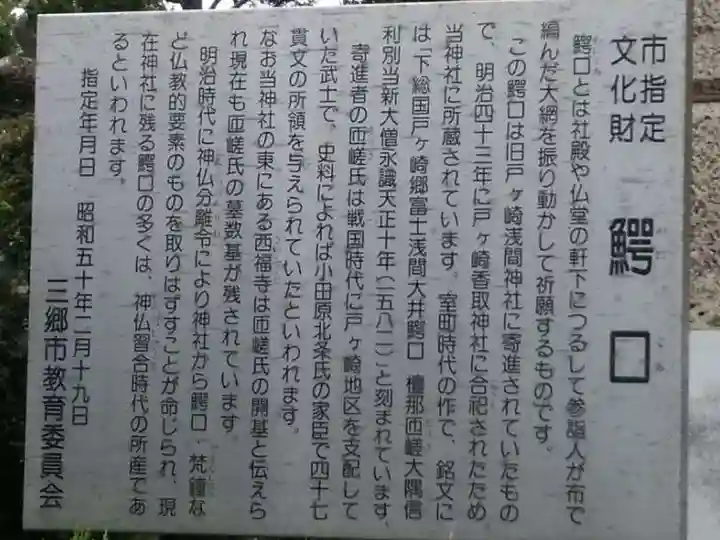 市指定
文化財
鰐口
鰐口とは社殿や仏堂の軒下につるして参詣人が布で
編んだ大網を振り動かして祈願するものです。
この鰐口は旧戸ヶ崎浅間神社に寄進されていたもの
で、明治四十三年に戸ヶ崎香取神社に合祀されたため
当神社に所蔵されています。室町時代の作で、銘文に
は「下総国戸ヶ崎郷富士浅間大井鰐口 檀那匝嵯大隅信
利別当新大僧永識天正十年(一五八二)と刻まれています。
寄進者の匝嵯氏は戦国時代に戸ヶ崎地区を支配して
いた武士で、史料によれば小田原北条氏の家臣で四十七
貫文の所領を与えられていたといわれます。
なお当神社の東にある西福寺は匝嵯氏の開基と伝えら
れ現在も匝嵯氏の墓数基が残されています。
明治時代に神仏分離令により神社から鰐口・梵鐘な
ど仏教的要素のものを取りはずすことが命じられ、現
在神社に残る鰐口の多くは、神仏習合時代の所産であ
るといわれます。
指定年月日 昭和五十年二月十九日
三郷市教育委員会